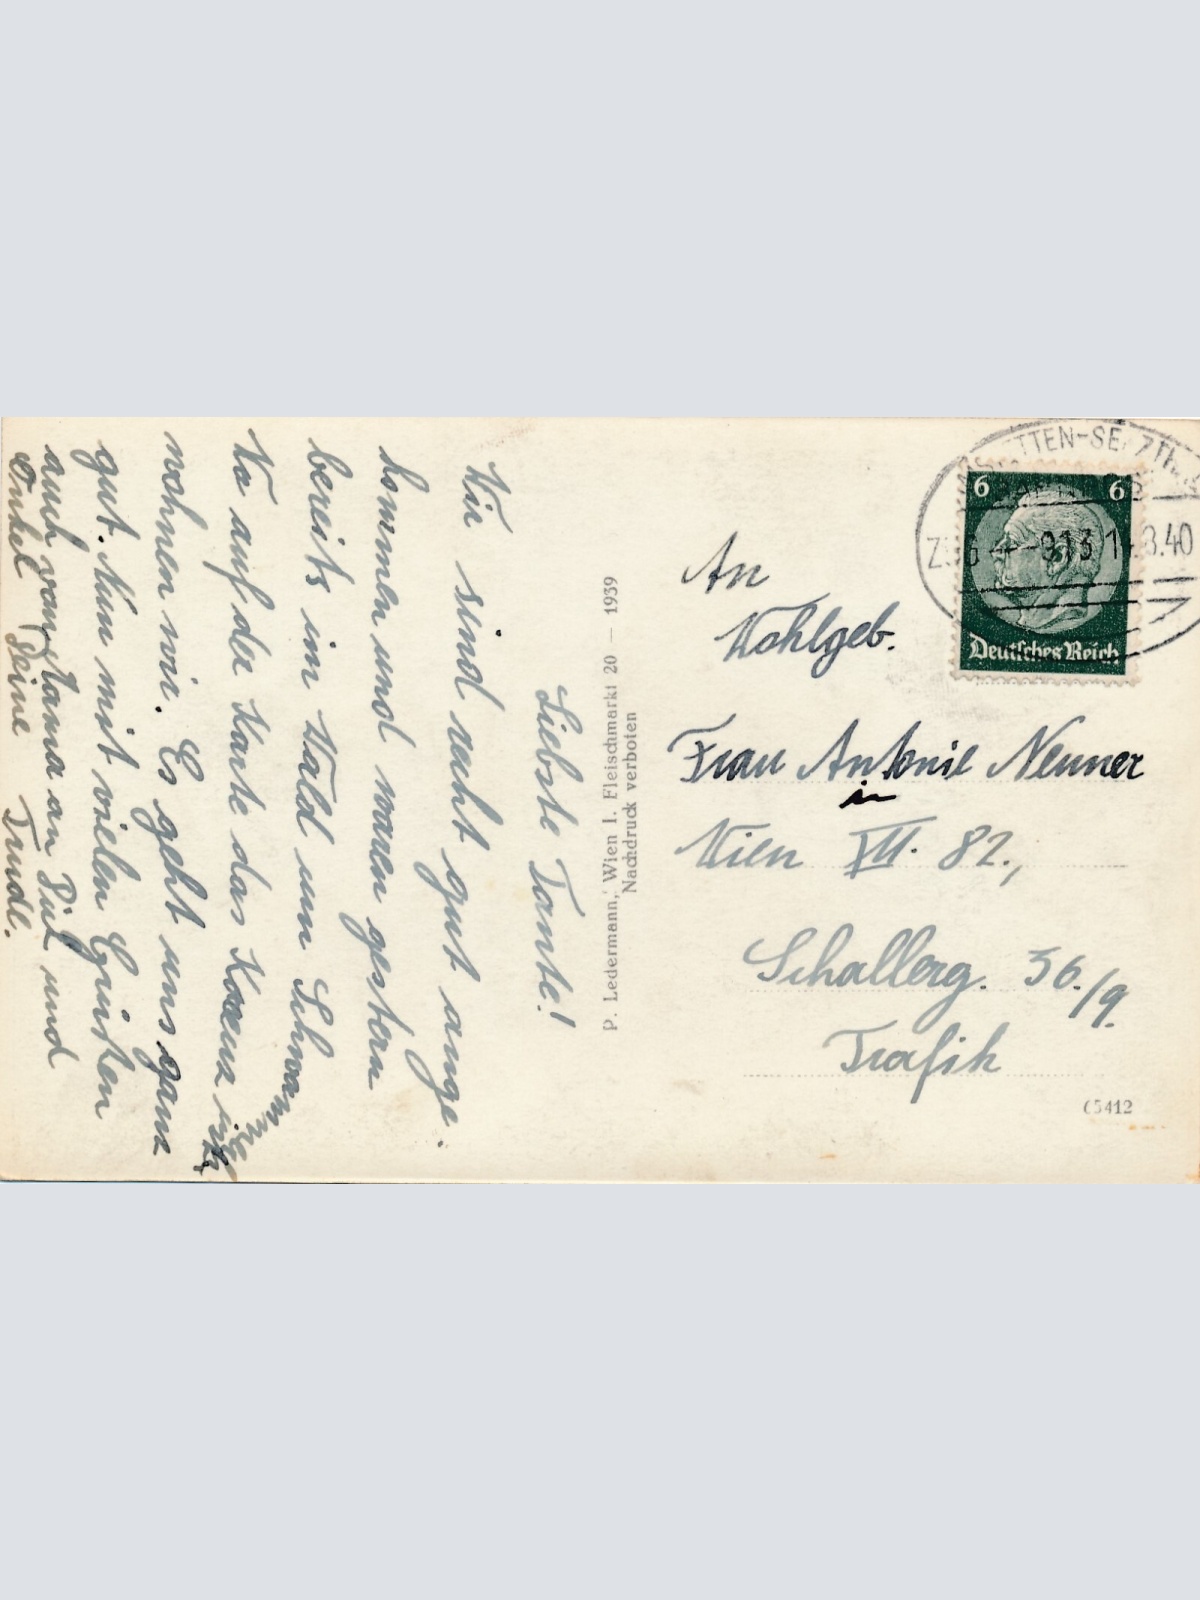 Liebste Tante!
Wir sind recht gut ange-
kommen und waren gestern
bereits im Wald um Schwämme
Wo auf der Karte das Kreuz ist,
wohnen wir. Es geht uns ganz
gut. Nun mit vielen Grüßen
auch von Mama an Dich und
Onkel Deine Trudl.
P. Ledermann, Wien I. Fleischmarkt 20 — 1939
Nachdruck verboten
6 6
Deutsches Reich
913
8.40
An
Wohlgeb.
Frau Antonie Neuner
in
Wien VII. 82.,
Schallerg. 36./9.
Trafik
5412